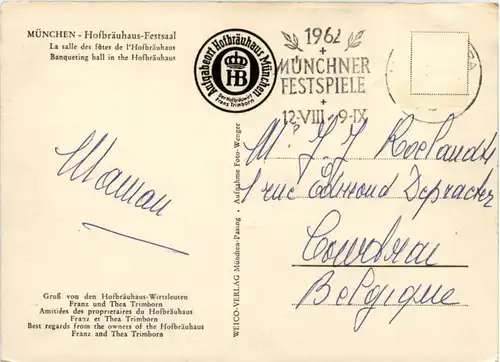 MÜNCHEN - Hofbräuhaus-Festsaal
La salle des fûtes de l'Hofbräuhaus
Banqueting hall in the Hofbräuhaus
Aufgabeort Hofbräuhaus München
HB
Der Hofbräuwirt
Franz Trimborn
1962
MÜNCHNER
FESTSPIELE
12.VIII - 9.IX
Maman
Gruß von den Hofbräuhaus-Wirtsleuten
Franz und Thea Trimborn
Amitiées des proprietaires du Hofbräuhaus
Franz et Thea Trimborn
Best regards from the owners of the Hofbräuhaus
Franz and Thea Trimborn
WEICO-VERLAG München-Pasing · Aufnahme Foto-Wenger
J. J.
1 rue Edmond
Belgique